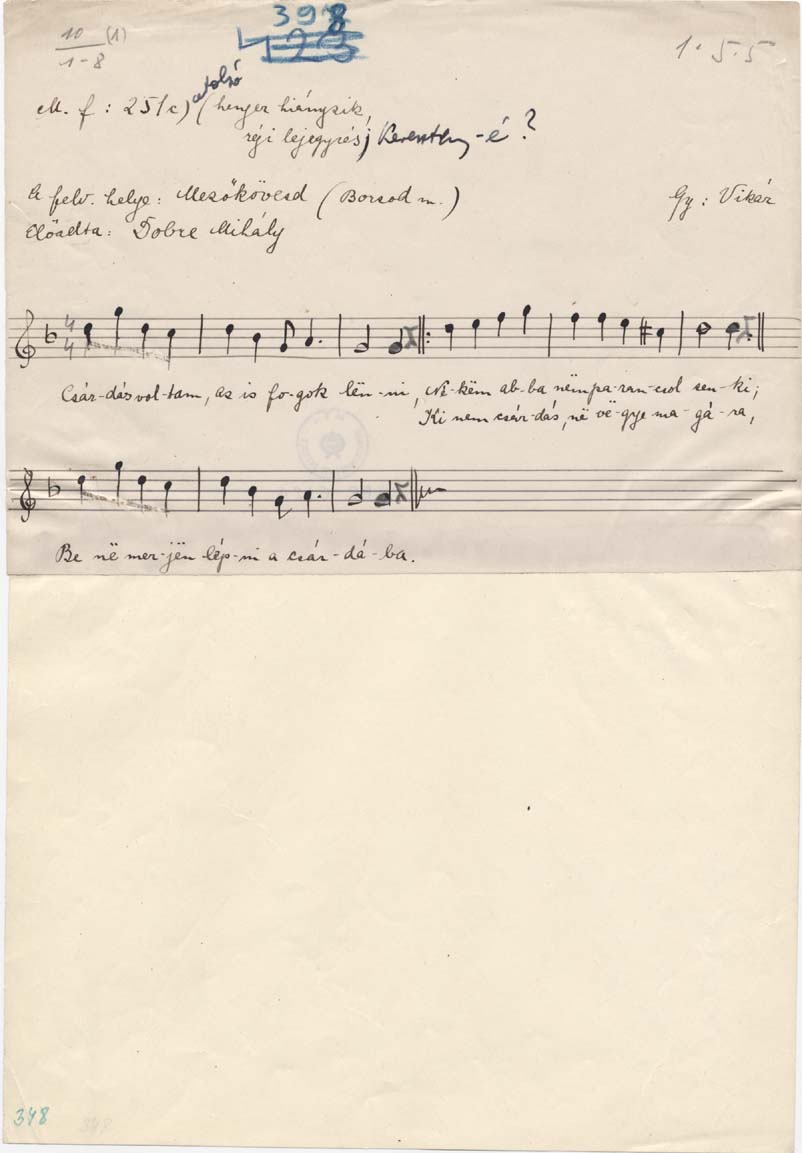 398
123
10 (1)
1-8
1. 5. 5
M. f: 251c) utolsó (henger hiányzik,
régi lejegyzés; Keresztény-é?
A felv. helye: Mezőkövesd (Borsod m.)
Gy: Vikár
Előadta: Dobre Mihály
4
4
Csár-dás vol-tam, az is fo-gok lën-ni, Në-këm ab-ba nëm pa-ran-csol sen-ki;
Ki nem csár-dás, në vë-gye ma-gá-ra,
Be në mer-jën lép-ni a csár-dá-ba.
348
348